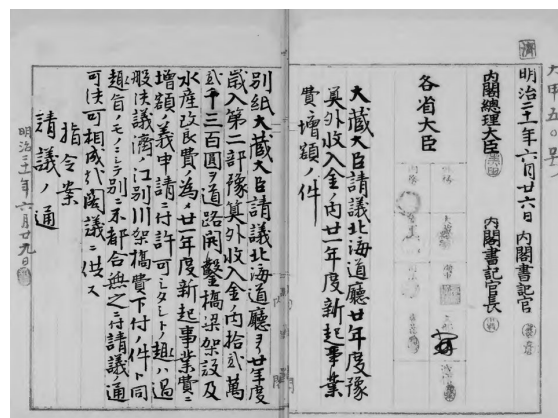 大甲五〇号
濟
明治二十一年六月廿六日 内閣書記官
内閣總理大臣 内閣書記官長
各省大臣
大蔵大臣請議北海道廳廿年度豫
算外收入金ノ内廿一年度新起事業
費ヘ増額ノ件
別紙大蔵大臣請議北海道廳ヲ廿年度
歳入第二部豫算外收入金ノ内拾貳萬
貳千三百圓ヲ道路開鑿橋梁架設及
水産改良費ノ為メ廿一年度新起事業費ニ
増額ノ義申請ニ付許可シタシトノ趣ハ過
般決議濟ノ江別川架橋費下付ノ件ト同
趣旨ノモノニシテ別ニ不都合無之ニ付請議ノ通
可決可相成乎閣議ニ供ス
指令案
請議ノ通
明治二十一年六月廿九日